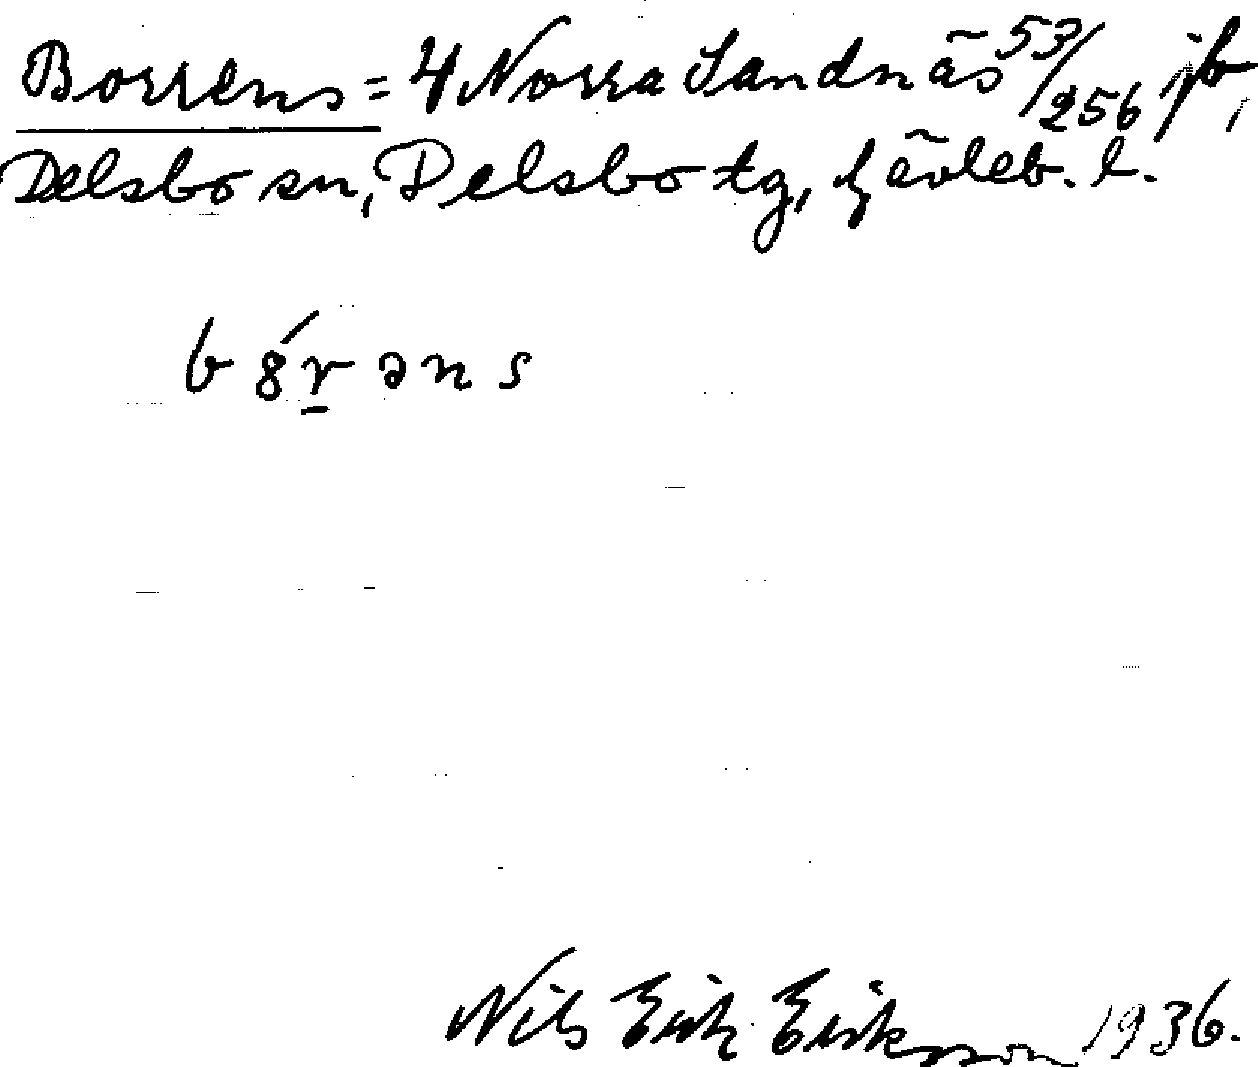 Borrens = 4 Norra Sandnäs 53/256 jb,
Delsbo sn, Delsbo tg, Gävleb. l.
b8́r̲əns
Nils Erik Eriksson 1936.